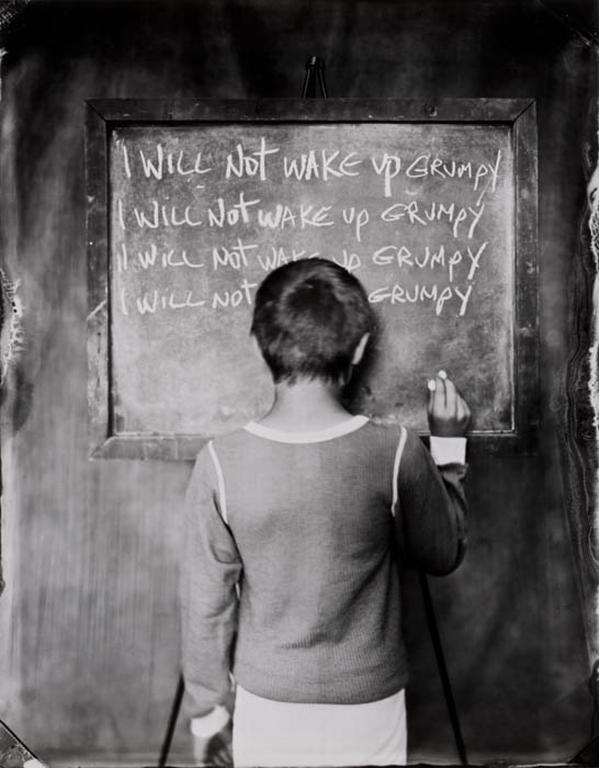 I WILL Not WAKE up GRUMPY
I WILL Not WAKE up GRUMPY
I WILL Not WAKE up GRUMPY
I WILL Not GRUMPY